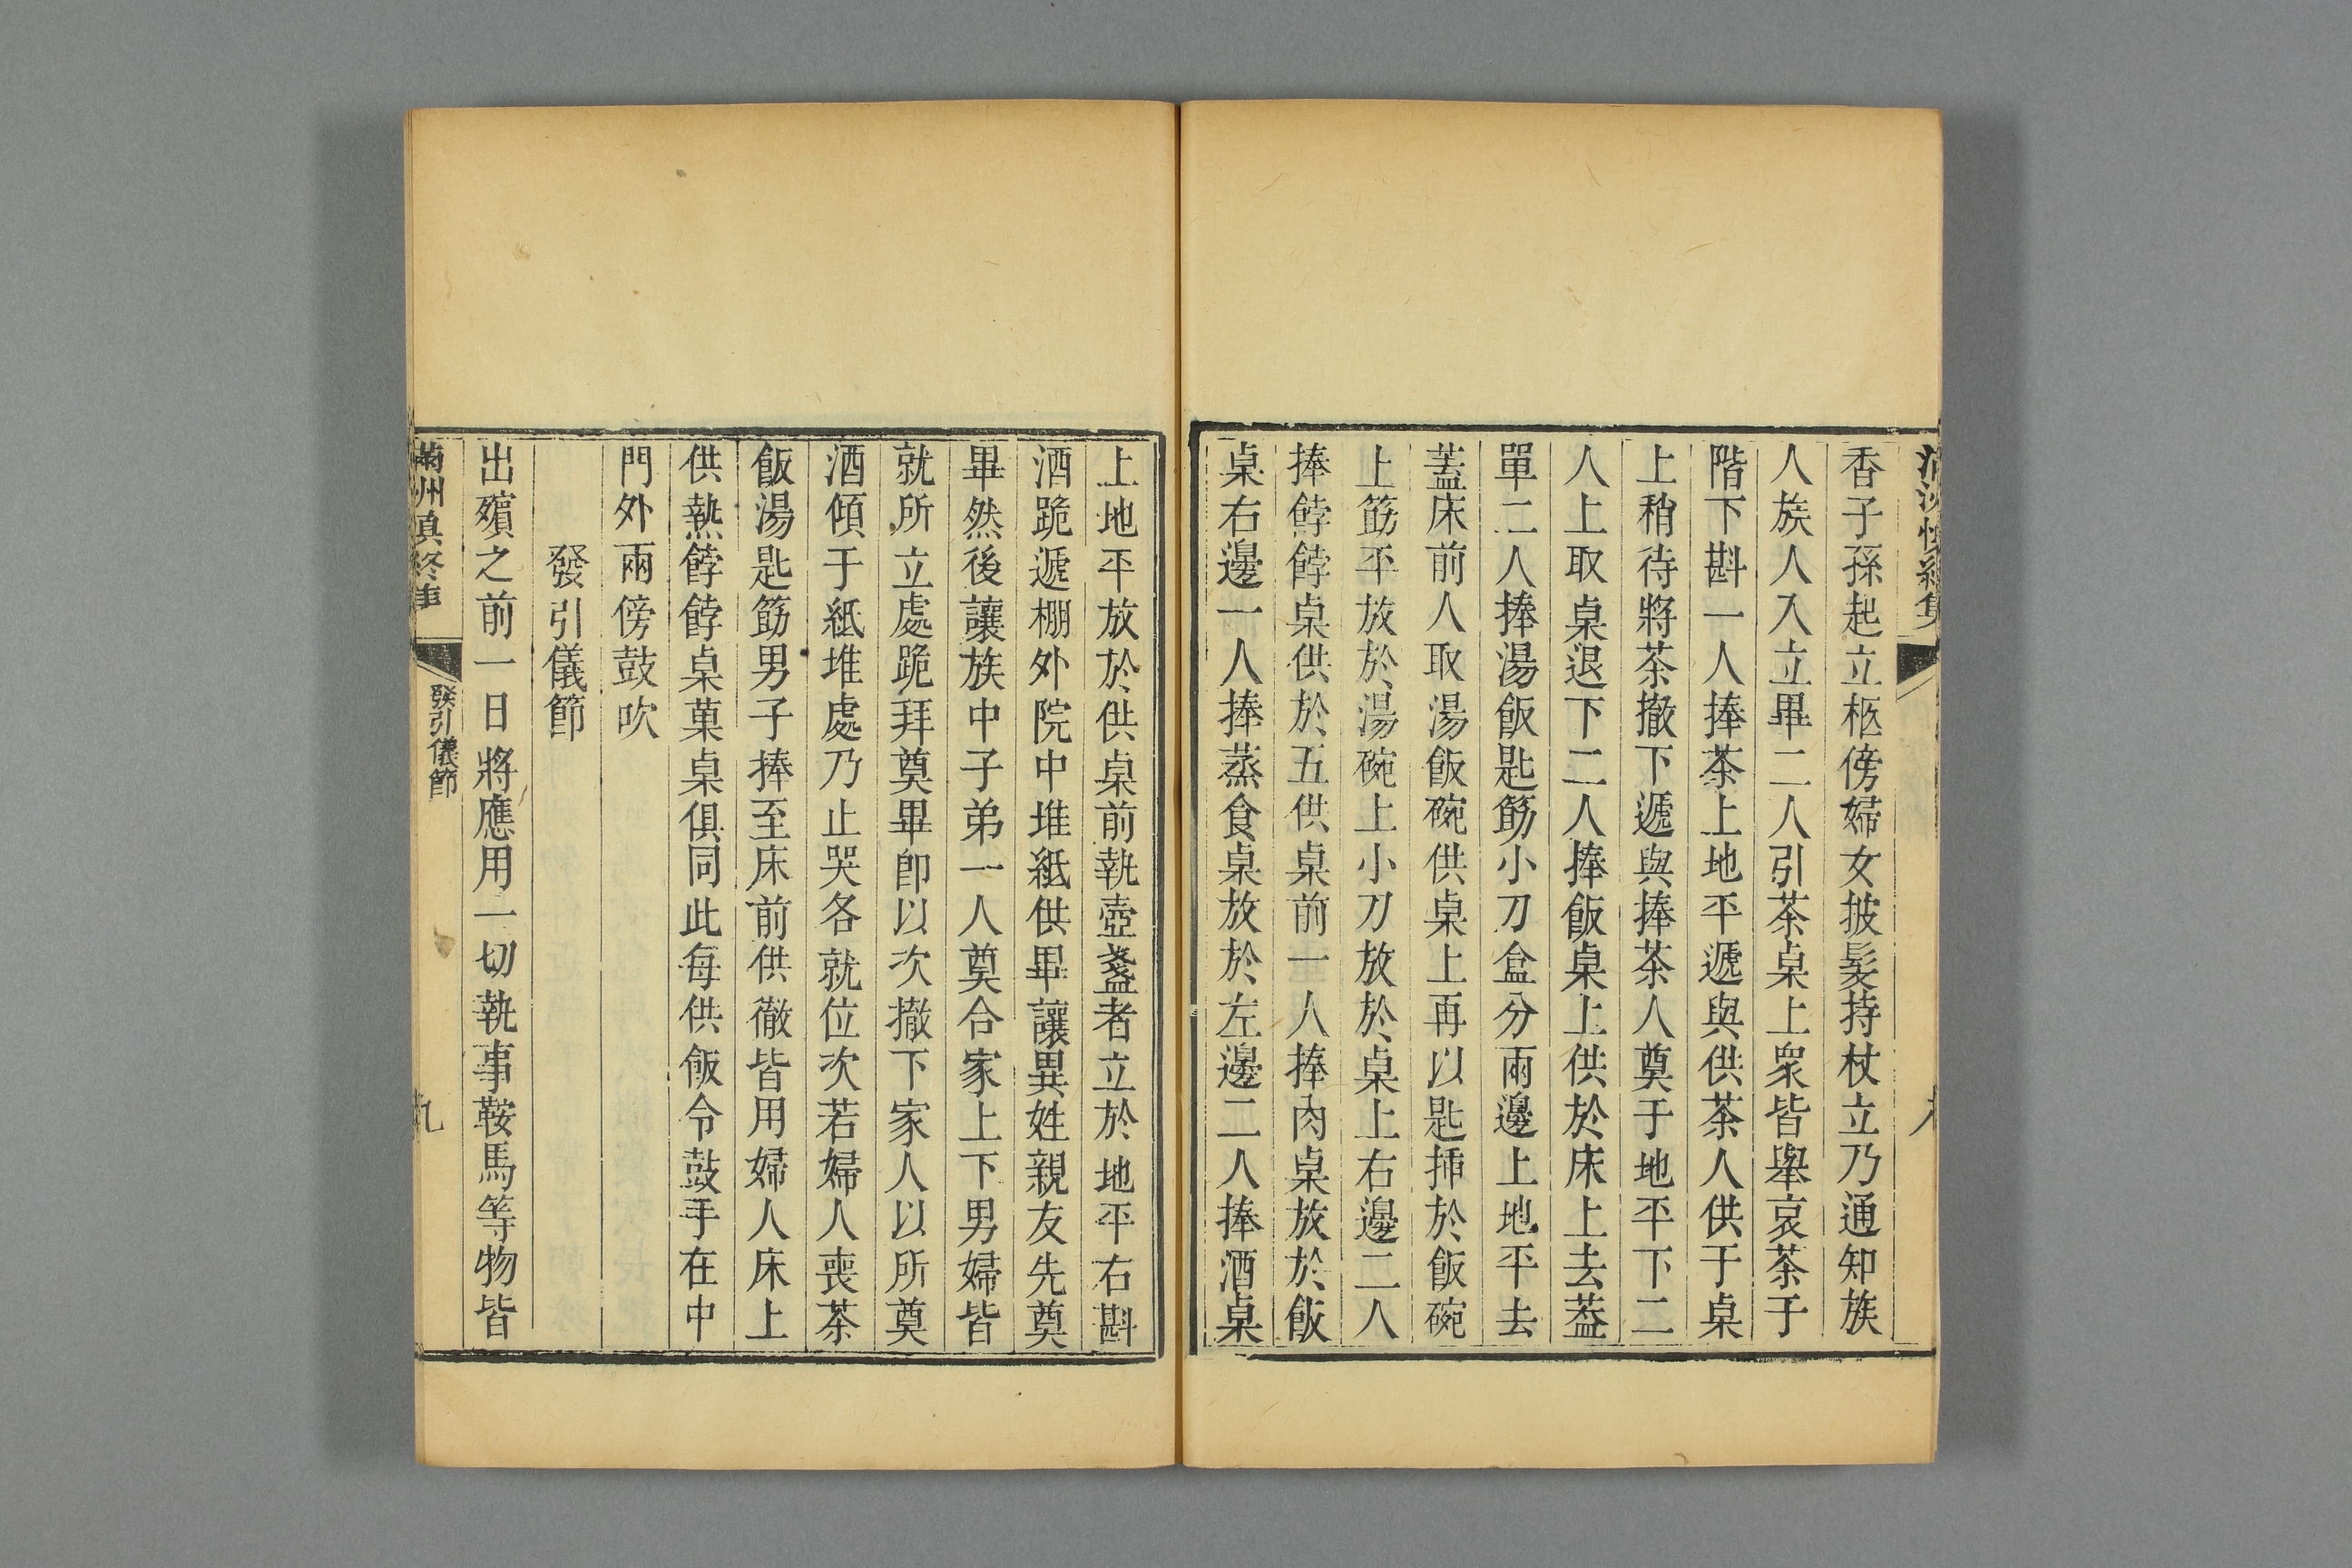 香子孫起立柩傍婦女披髮持杖立乃通知族
人族人入立畢二人引茶桌上衆皆舉哀茶于
階下斟一人捧茶上地平遞與供茶人供于桌
上稍待將茶撤下遞與捧茶人奠于地平下二
人上取桌退下二人捧飯桌上供於床上去葢
單二人捧湯飯匙筯小刀盒分兩邊上地平去
蓋床前人取湯飯碗供桌上再以匙揷於飯碗
上筯平放於湯碗上小刀放於桌上右邊二人
捧餑餑桌供於五供桌前一人捧肉桌放於飯
桌右邊一人捧蒸食桌放於左邊二人捧酒桌
上地平放於供桌前執壺盞者立於地平右斟
酒跪遞棚外院中堆紙供畢讓異姓親友先奠
畢然後讓族中子弟一人奠合家上下男婦皆
就所立處跪拜奠畢卽以次撤下家人以所奠
酒傾于紙堆處乃止哭各就位次若婦人喪茶
飯湯匙筯男子捧至床前供徹皆用婦人床上
供熱餑餑桌菓桌俱同此每供飯令鼓手在中
門外兩傍鼓吹
發引儀節
出殯之前一日將應用一切執事鞍馬等物皆
滿洲慎終集
發引儀節
九